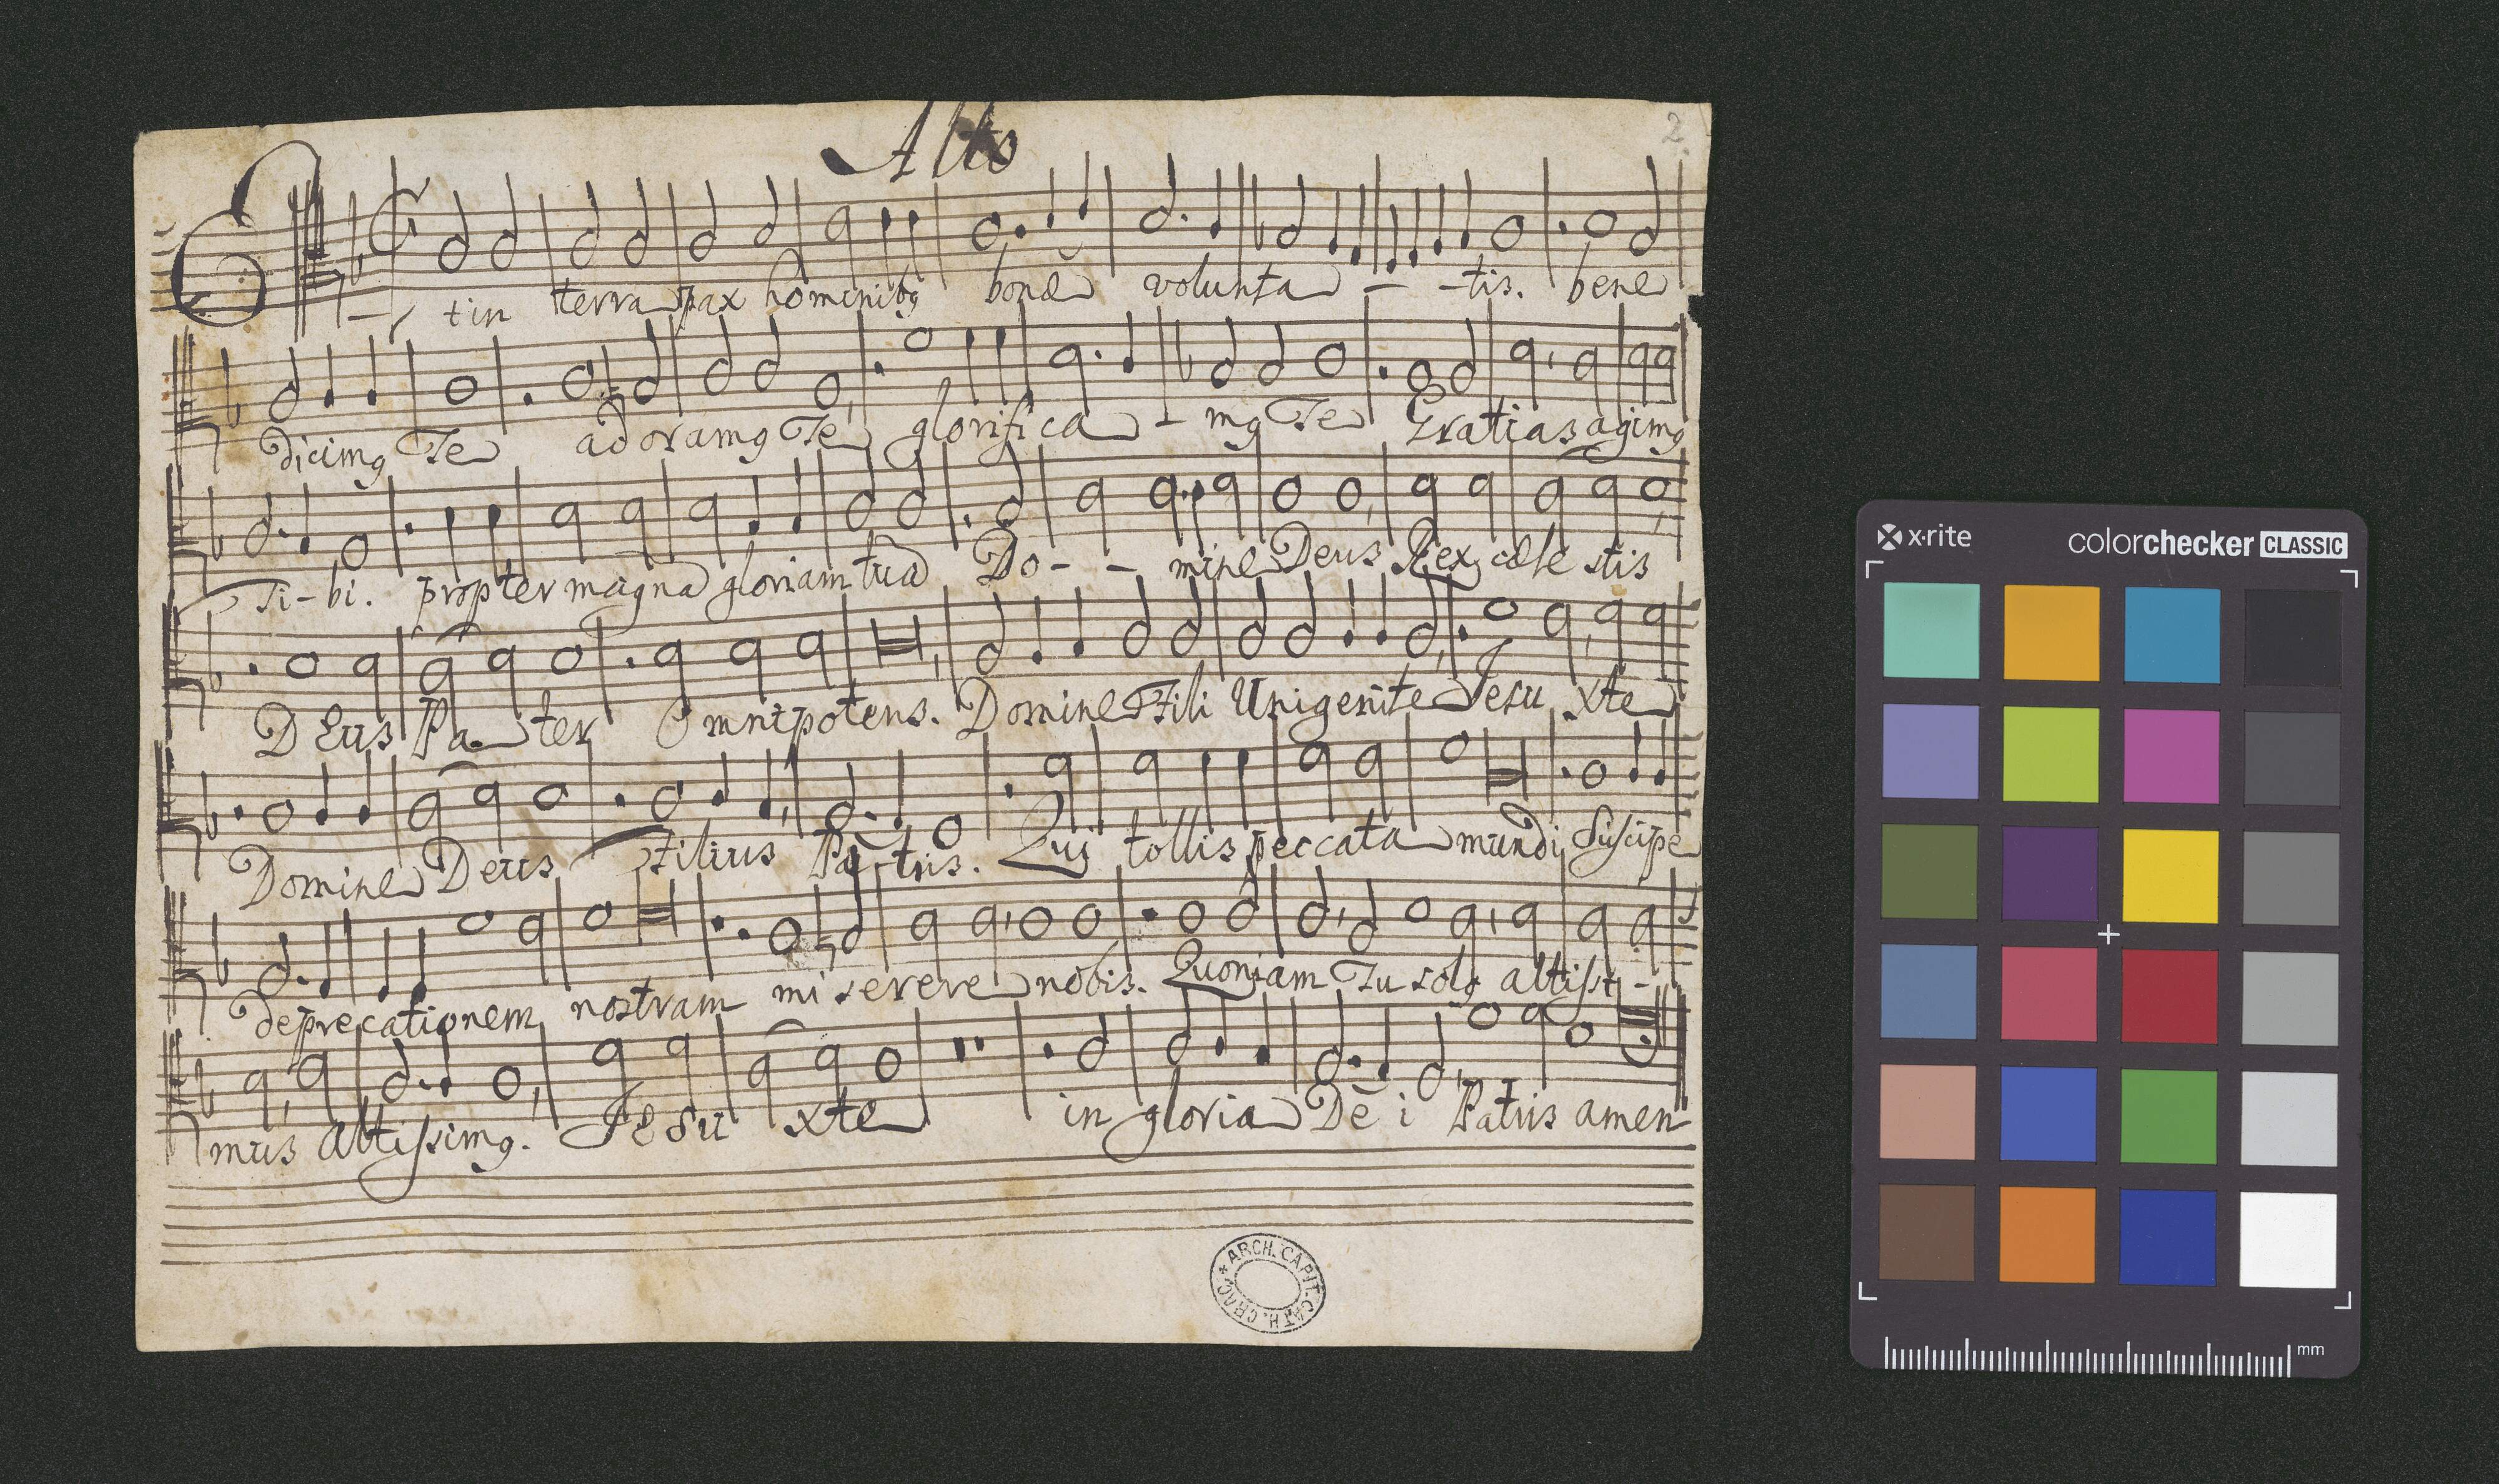 Alts
2.
Et in terra pax hominibꝯ bonæ volunta - - tis. bene
dicimꝯ Te adoramꝯ Te glorifica - mꝯ Te Gratias agimꝯ
Ti-bi. propter magnã gloriam tuã Do- - mine Deus Rex cæle stis
DEus Pa- ter Omnipotens. Domine Fili Unigenite Jesu xte
Domine Deus Filius Pa-tris. Qui tollis peccata mundi Suscipe
deprecationem nostram miserere nobis. Quoniam Tu solꝯ altissi-
mus altissimꝯ. Jesu xte in gloria De i Patris amen
ARCH. CAPIT. CATH. CRAC.
x·rite
colorchecker CLASSIC
mm